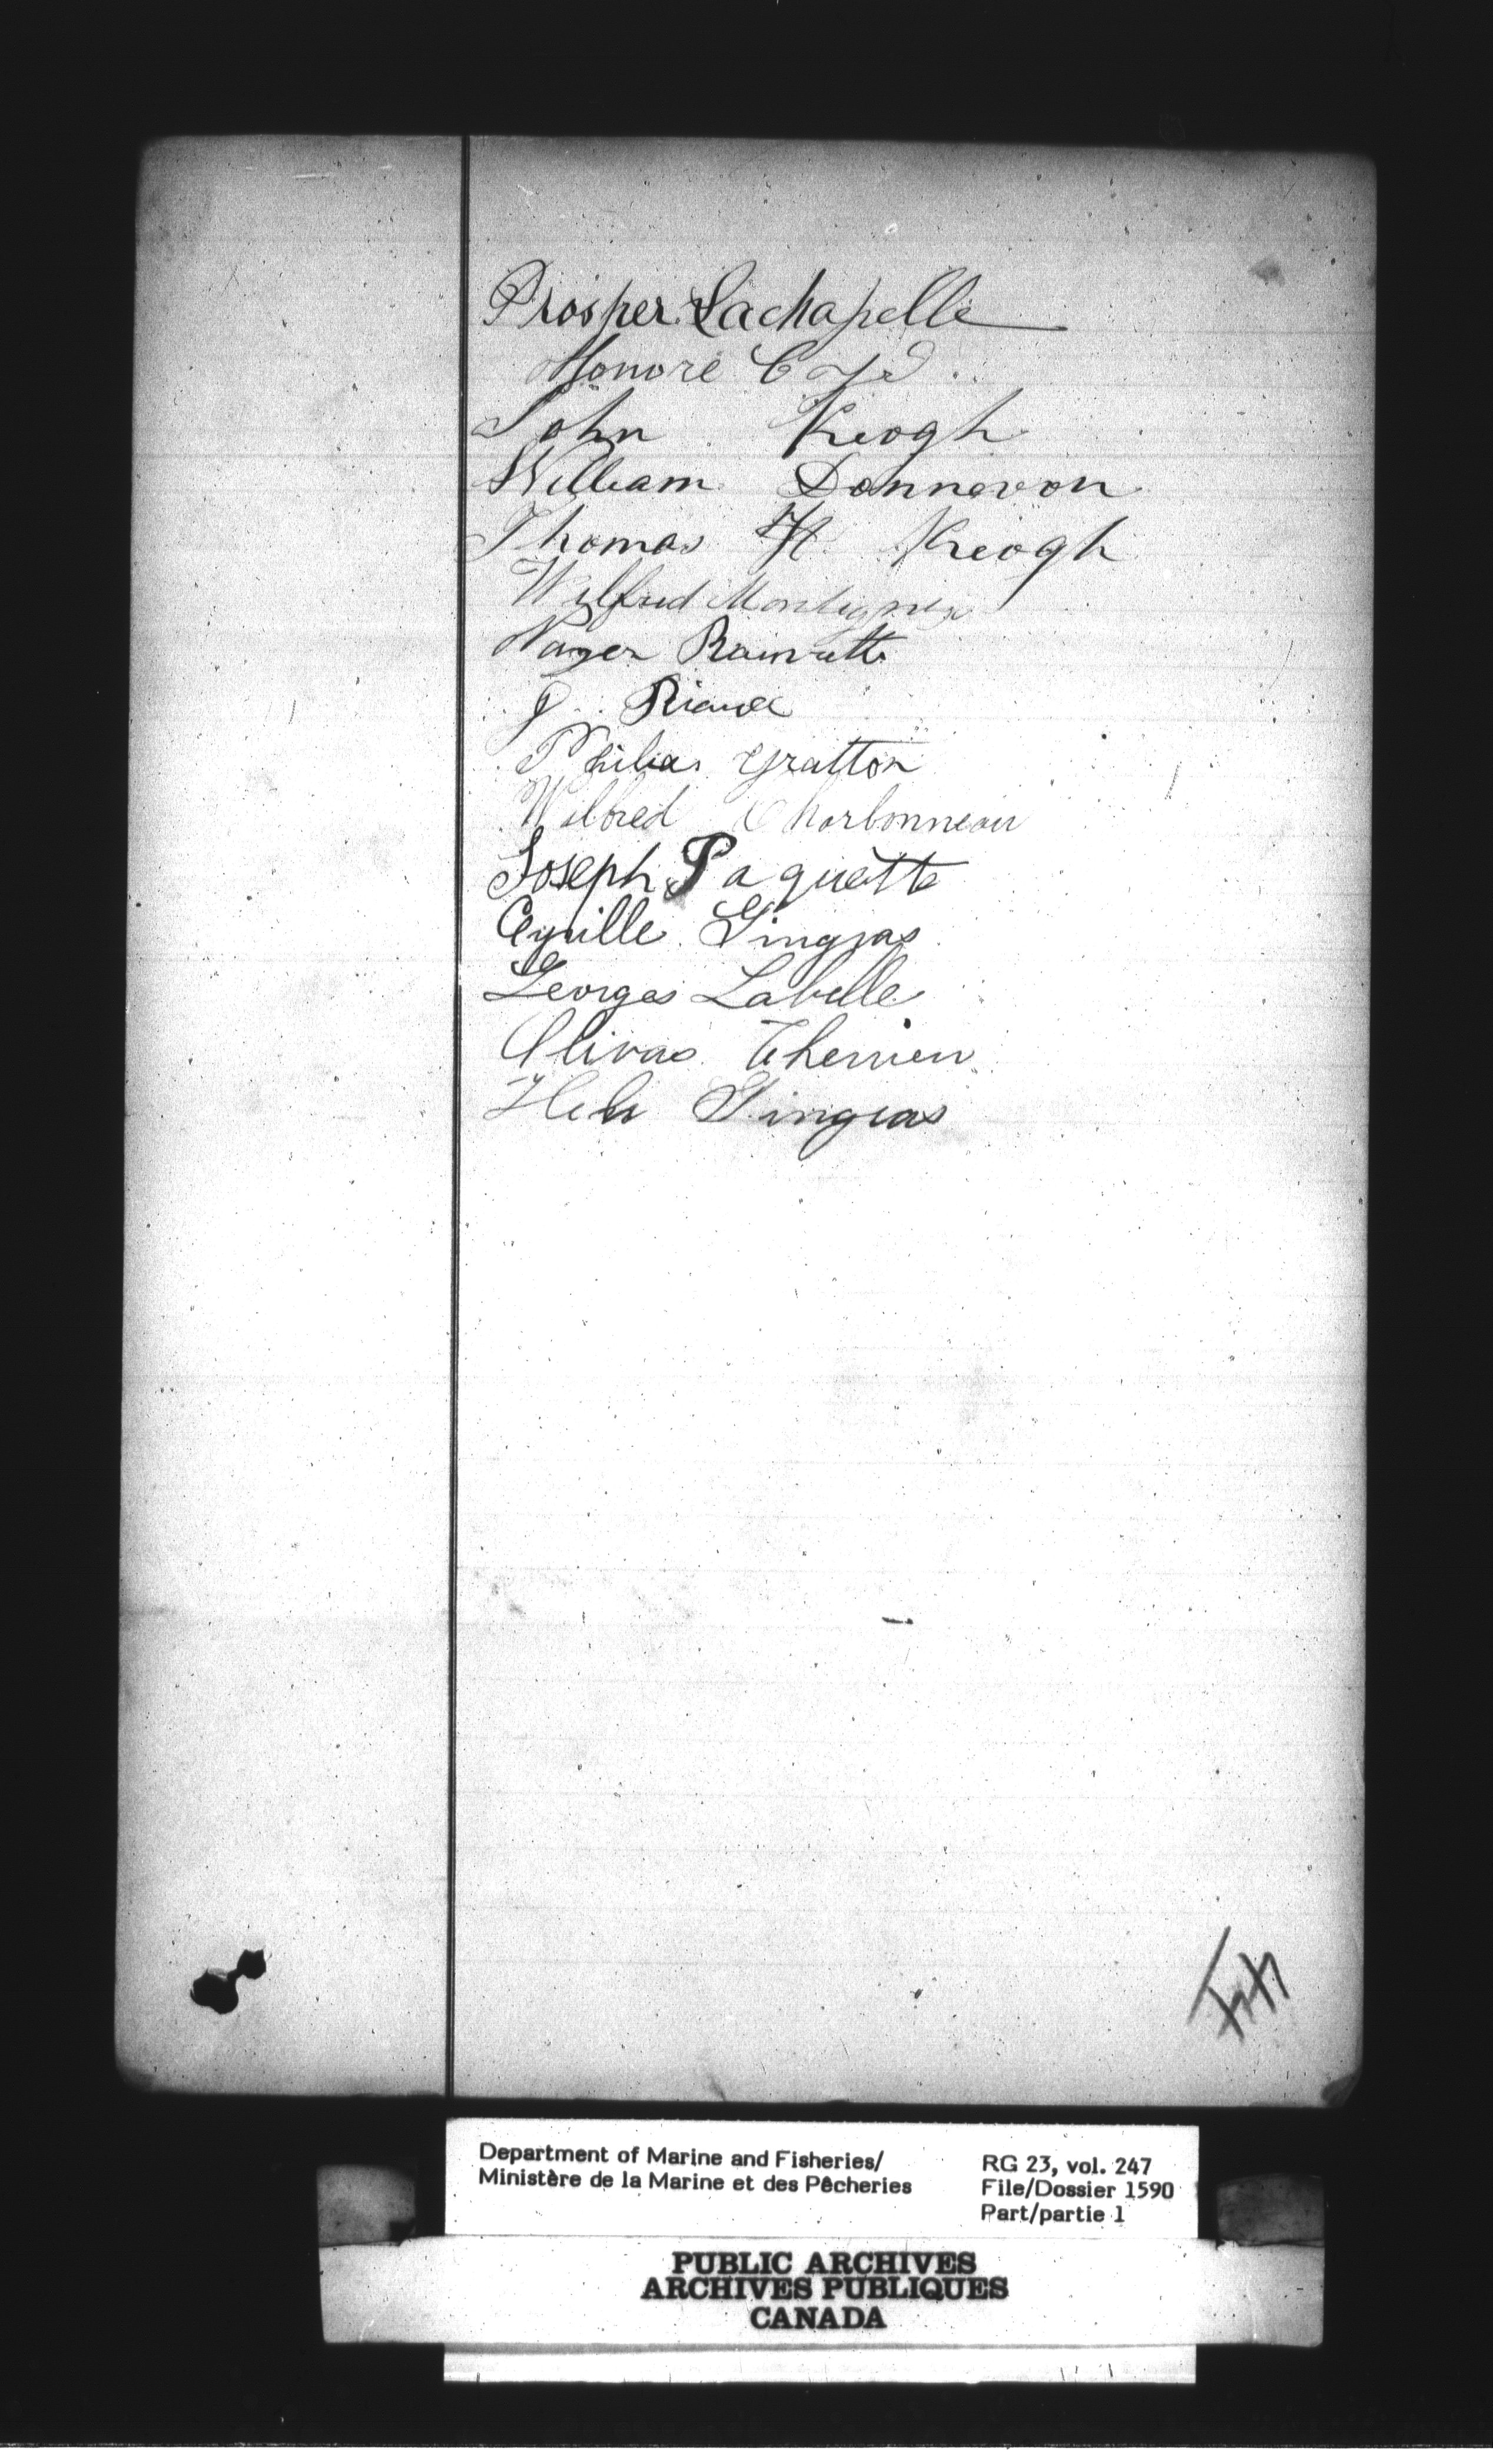 Prosper Lachapelle
Honoré Cyr
John Keogh
William Donnevon
Thomas H Keogh
Wilfred
Rainville
J.
Philias Gratton
Wilbred Charbonneau
Joseph Paquette
Cyrille Gingras
Georges Labelle
Olivas Therrien
Gingras
Department of Marine and Fisheries/
Ministère de la Marine et des Pêcheries
RG 23, vol. 247
File/Dossier 1590
Part/partie 1
PUBLIC ARCHIVES
ARCHIVES PUBLIQUES
CANADA